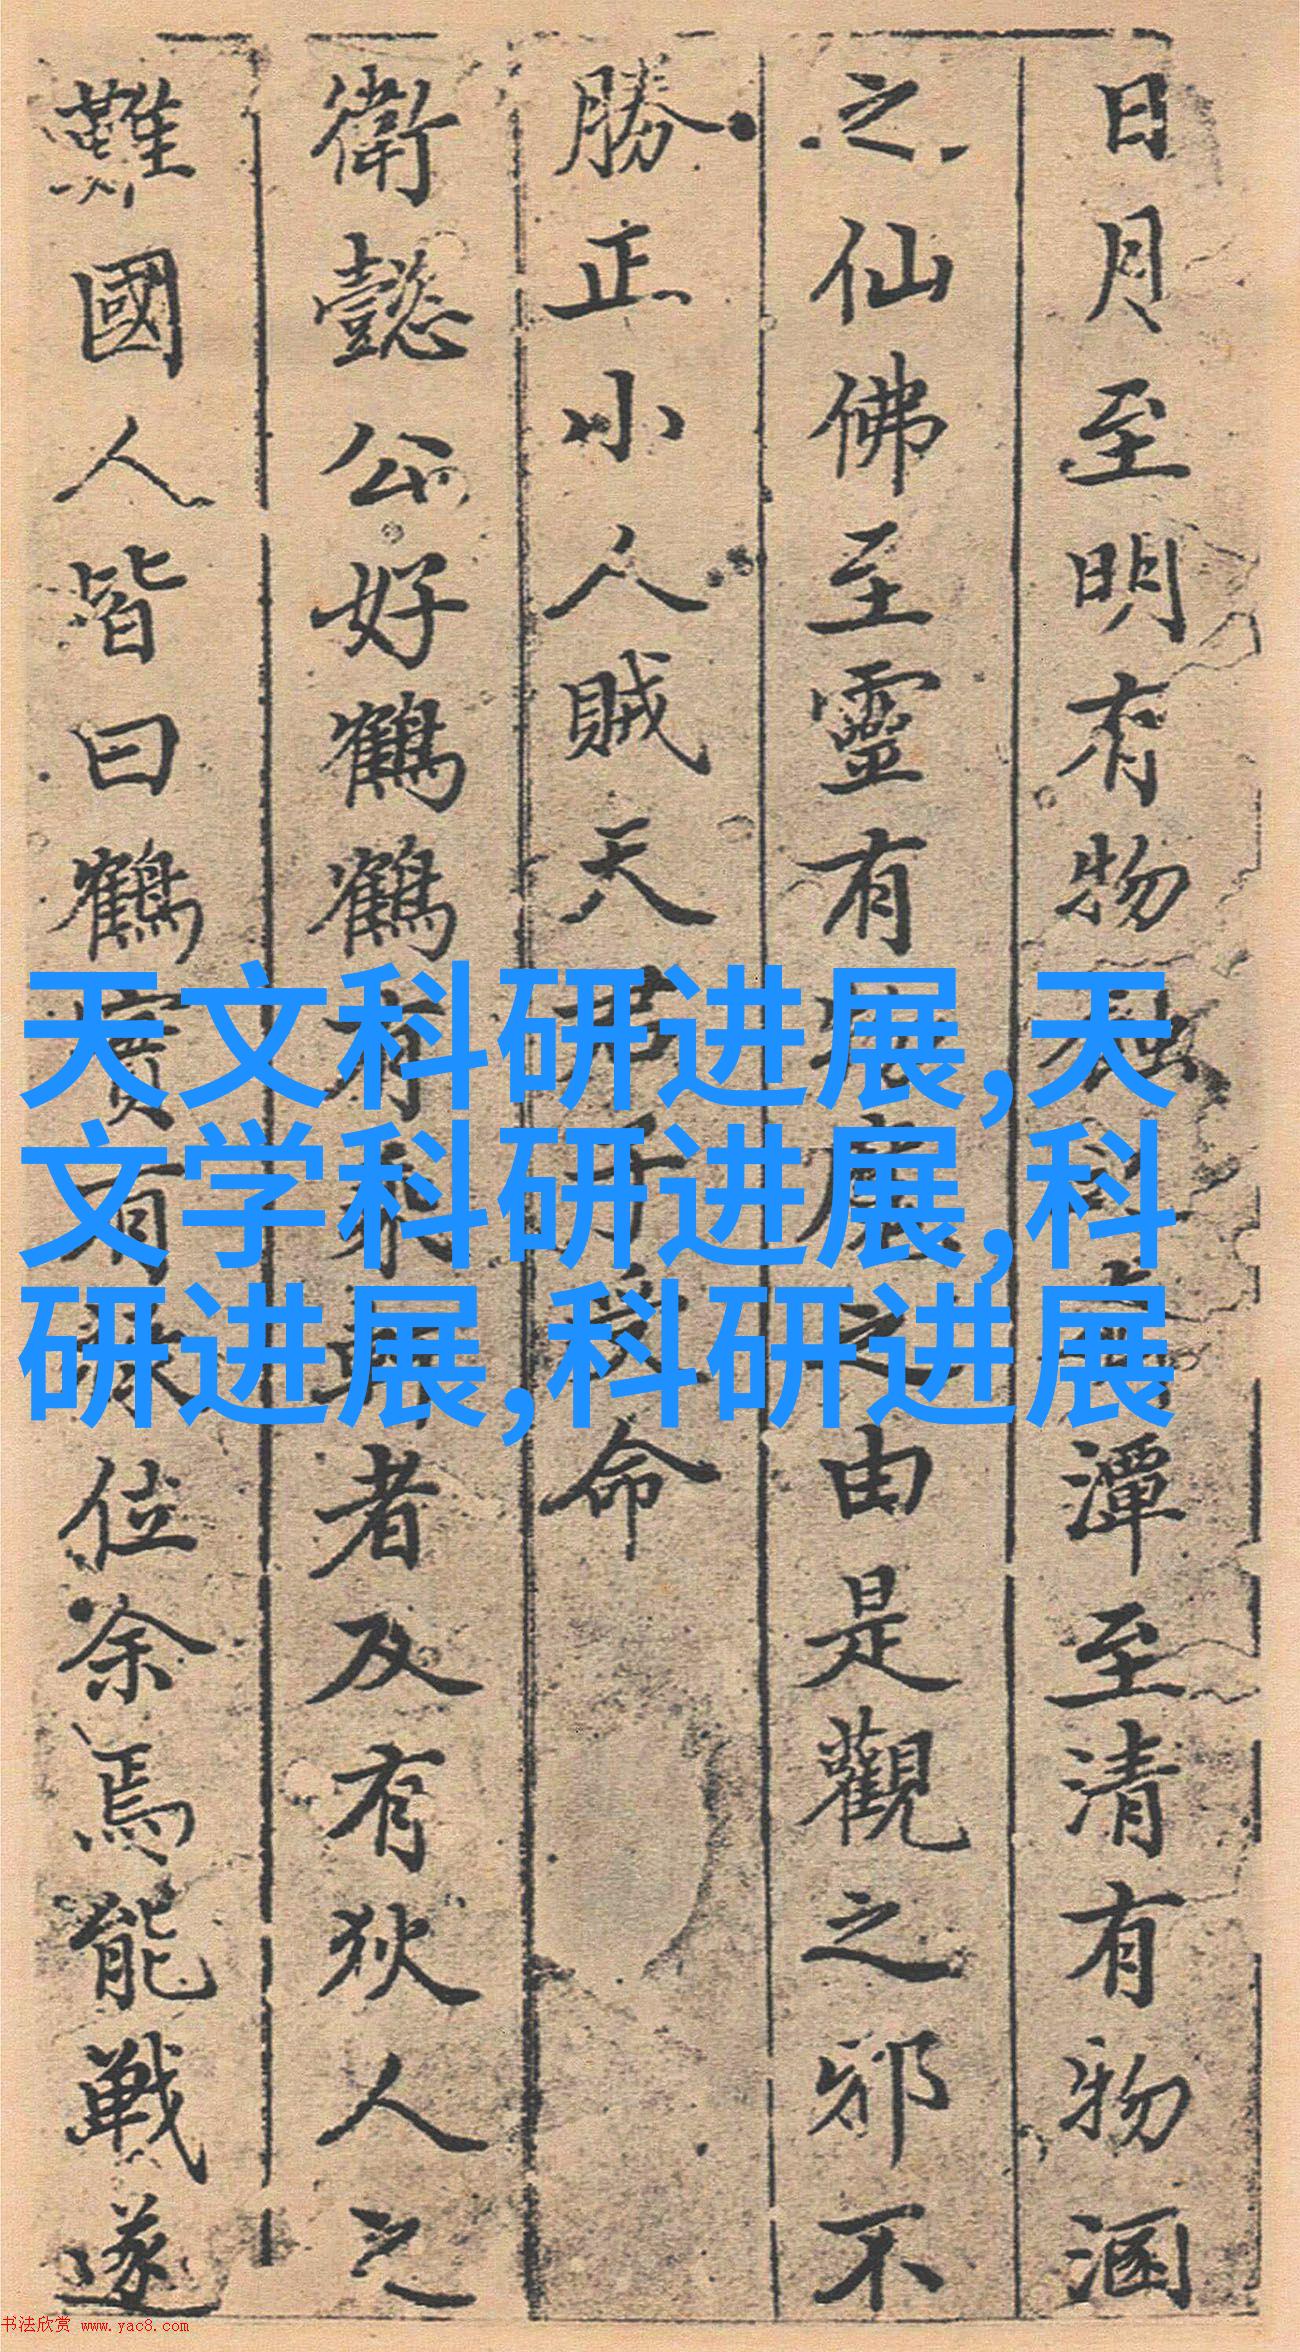 日月至明有物
潭至清有物涵
之仙佛至靈有
之由是觀之邪不
勝正小人賊天君子受命
衛懿公好鶴鶴有乘軒者及有狄人之
難國人皆曰鶴實有祿位余焉能戰遂
天文科研进展,天
文学科研进展,科
研进展,科研进展
书法欣赏 www.yac8.com